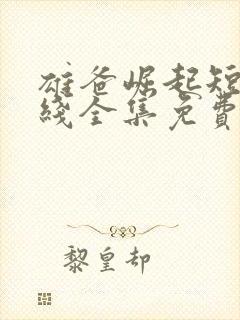 雄爸崛起短
綫全集免費
黎皇却